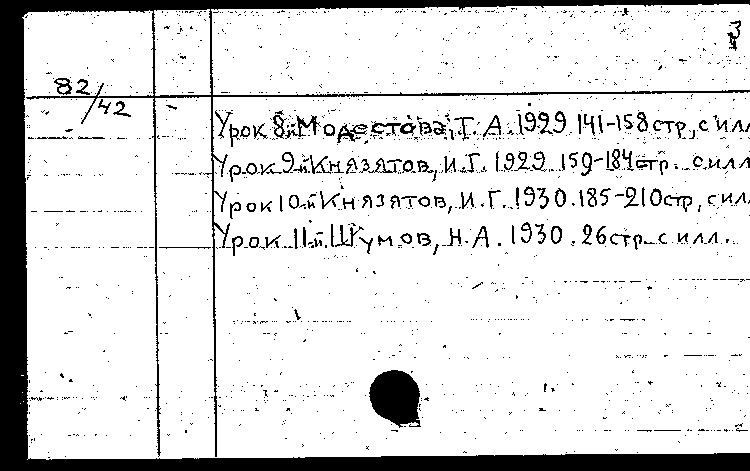 3
82/42
Урок 8й Модестова, Т. А. 1929 141-158 стр., с илл
Урок 9й Князятов, И. Г. 1929 159-184 стр. с илл
Урок 10й Князятов, И. Г. 1930. 185-210 стр, с илл
Урок 11й Шумов, Н. А. 1930. 26 стр. с илл.